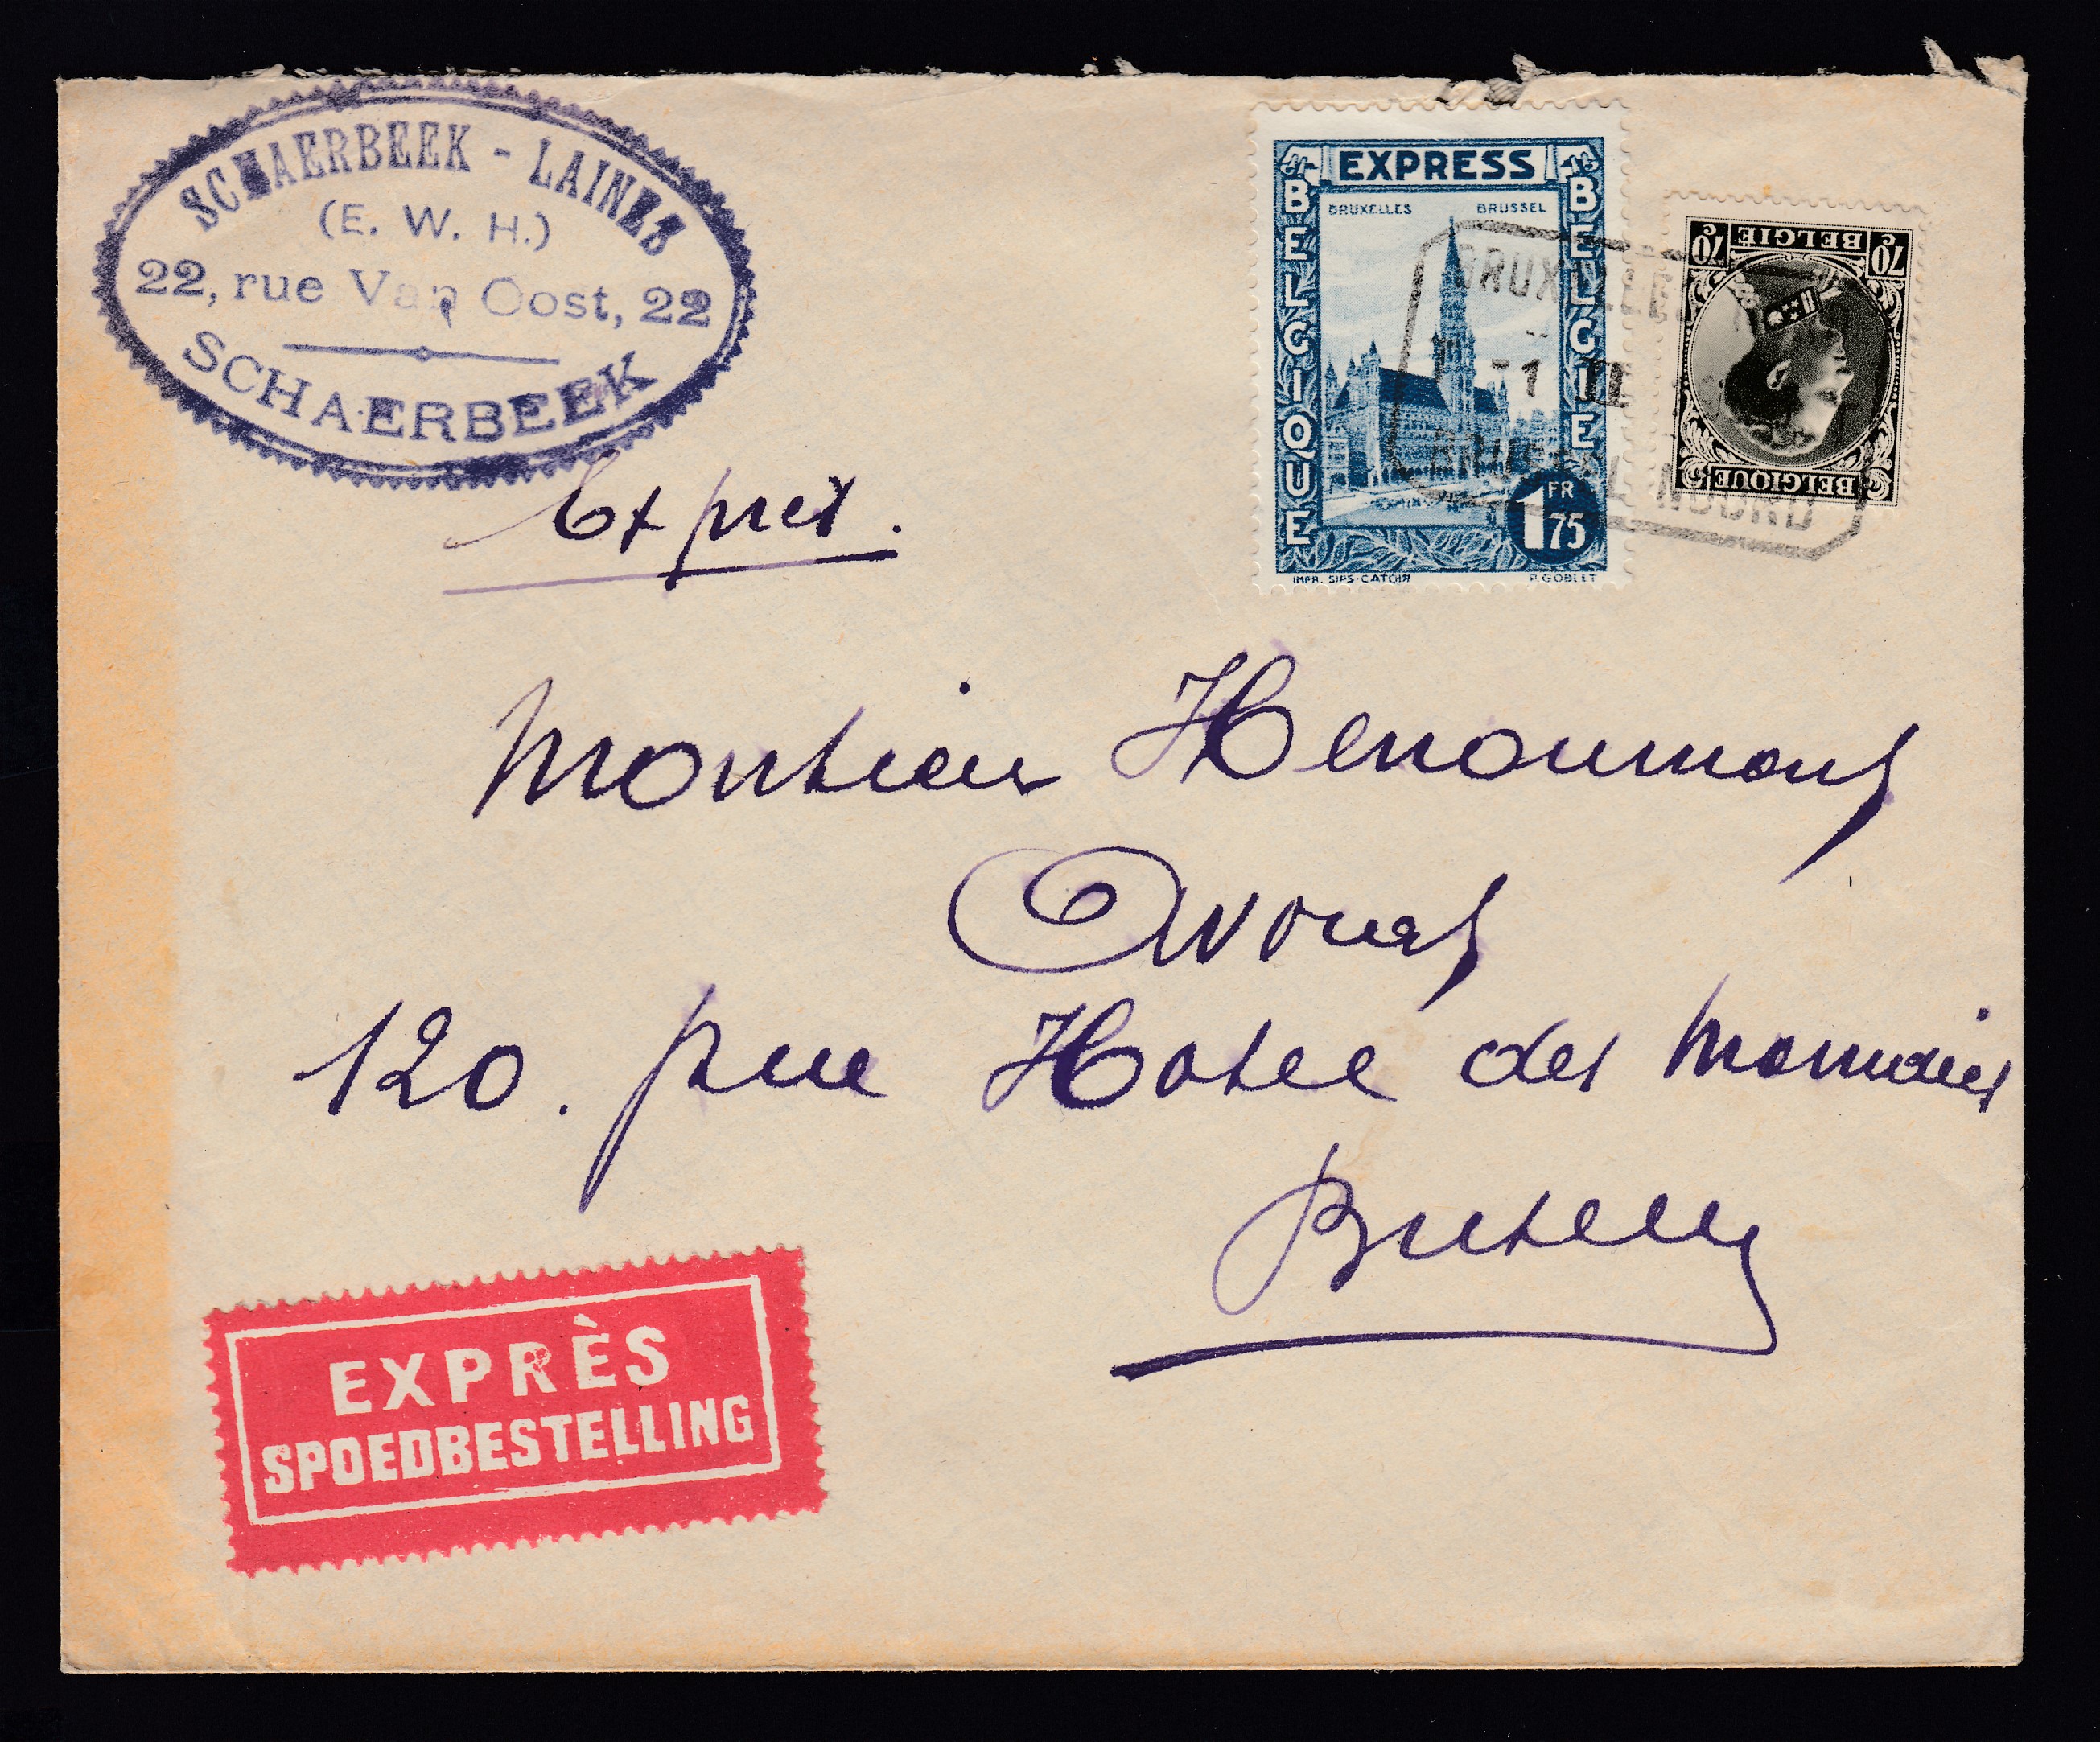 SCHAERBEEK - LAINES
(E. W. H.)
22, rue Van Oost, 22
SCHAERBEEK
EXPRESS
BRUXELLES BRUSSEL
BELGIQUE
BELGIE
1 FR 75
IMPR. SIPS-CATOIR P. GOBLET
70 c BELGIE 70 c
BELGIQUE
-1 II
BRUSSEL NOORD
Exprès.
Monsieur Henoumont
Avoué
120. rue Hotel des Monnaies
Bruxelles
EXPRÈS
SPOEDBESTELLING